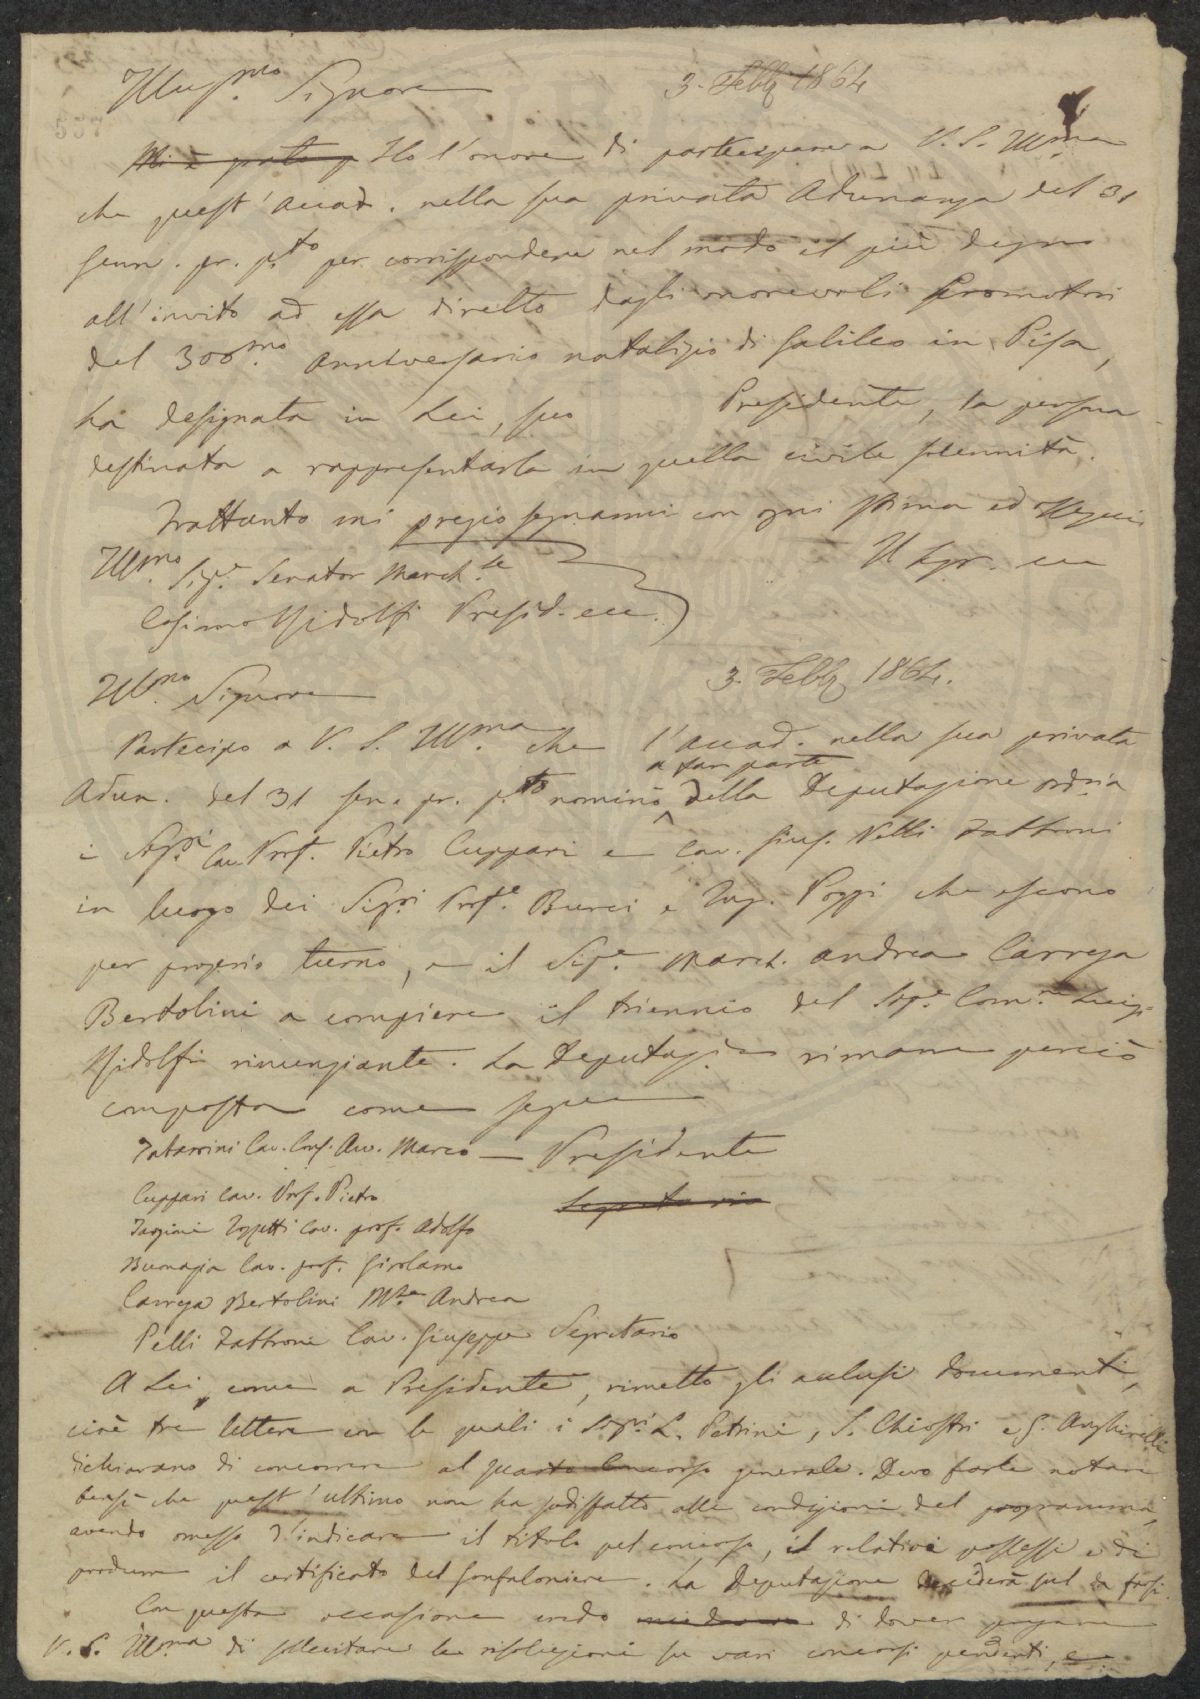 Illus.mo Signore
3. Febb. 1864
Mi è grato p Ho l'onore di partecipare a V. S. Ill.ma
che quest'Accad. nella sua privata Adunanza del 31
Genn. pr. p.to per corrispondere nel modo il più degno
all'invito ad essa diretto dagli onorevoli Promotori
del 300.mo anniversario natalizio di Galileo in Pisa,
ha designata in Lei, suo Presidente, la persona
destinata a rappresentarla in quella civile solennità.
Frattanto mi pregio segnarmi con ogni stima ed ossequio
Ill.mo Sig.e Senator March.se
Il Segr.
Cosimo Ridolfi Presid. ecc.
Ill.mo Signore
3. Febb. 1864.
Partecipo a V. S. Ill.ma che l'Accad. nella sua privata
a far parte
Adun. del 31 Gen. pr. p.to nominò della Deputazione ord.ria
i Sig.ri Cav. Prof. Pietro Cuppari e Cav. Gius. Pelli Fabbroni
in luogo dei Sig.ri Prof.e Burci e Ing. Poggi che escono
per proprio turno, e il Sig.e March. Andrea Carrega
Bertolini a compiere il triennio del Sig.e Com.re Luigi
Ridolfi rinunziante. La Deputaz.e rimane perciò
composta come segue
Tabarrini Cav. Cons. Avv. Marco — Presidente
Cuppari Cav. Prof. Pietro
Segretario
Targioni Tozzetti Cav. prof. Adolfo
Buonazia Cav. prof. Girolamo
Carrega Bertolini M.se Andrea
Pelli Fabbroni Cav. Giuseppe Segretario
A Lei, come a Presidente, rimetto gli acclusi documenti,
cioè tre lettere con le quali i Sig.ri L. Petrini, S. Chiostri e G. Anghirelli
dichiarano di concorrere al quarto Concorso generale. Devo farle notare
bensì che quest'ultimo non ha sodisfatto alle condizioni del programma,
avendo omesso d'indicare il titolo pel concorso, i relativi possessi e di
produrre il certificato del Gonfaloniere. La Deputazione deciderà sul da farsi.
Con questa occasione credo di dover pregare
V. S. Ill.ma di sollecitare le risoluzioni su vari concorsi pendenti, e